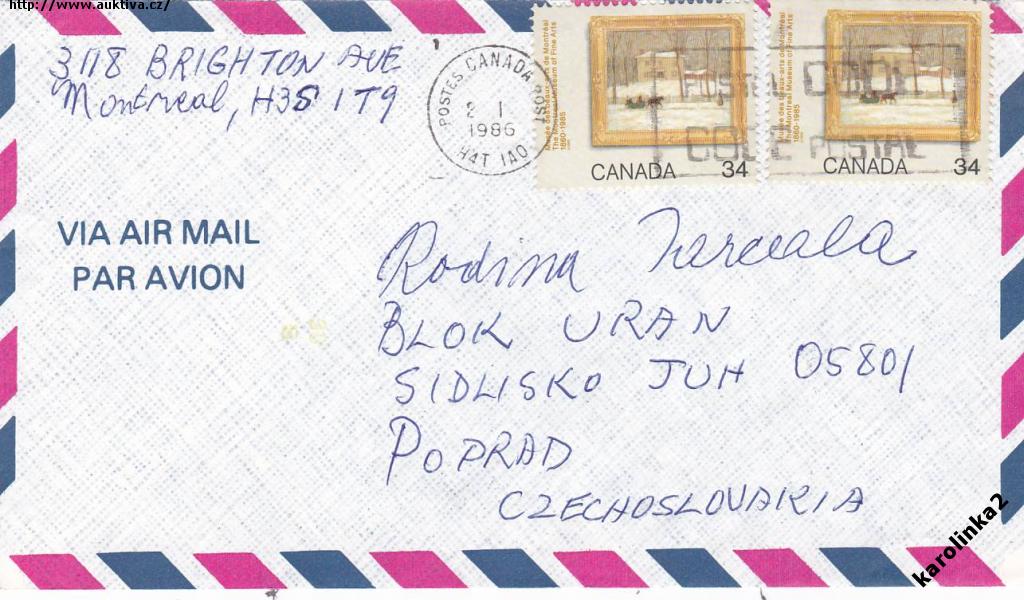 http://www.auktiva.cz/
3118 BRIGHTON AVE
Montreal, H3S 1T9
POSTES CANADA POST
2 I
1986
H4T 1A0
Musée des beaux-arts de Montréal
The Montreal Museum of Fine Arts
1860-1985
CANADA 34
Musée des beaux-arts de Montréal
The Montreal Museum of Fine Arts
1860-1985
CANADA 34
POSTAL CODE
CODE POSTAL
VIA AIR MAIL
PAR AVION
Rodina
BLOK URAN
SIDLISKO JUH 05801
POPRAD
CZECHOSLOVAKIA
karolinka2